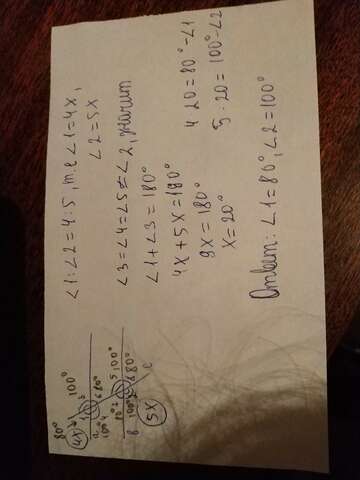 ∠1:∠2=4:5, т.е ∠1=4x,
∠2=5x
∠3=∠4=∠5=∠2, значит
∠1+∠3=180°
4x+5x=180°
9x=180°
x=20°
4·20=80°-∠1
5·20=100°-∠2
Ответ: ∠1=80°, ∠2=100°
80°
4x
100°
a
100°
80°
100°
80°
b
100°
5x
c